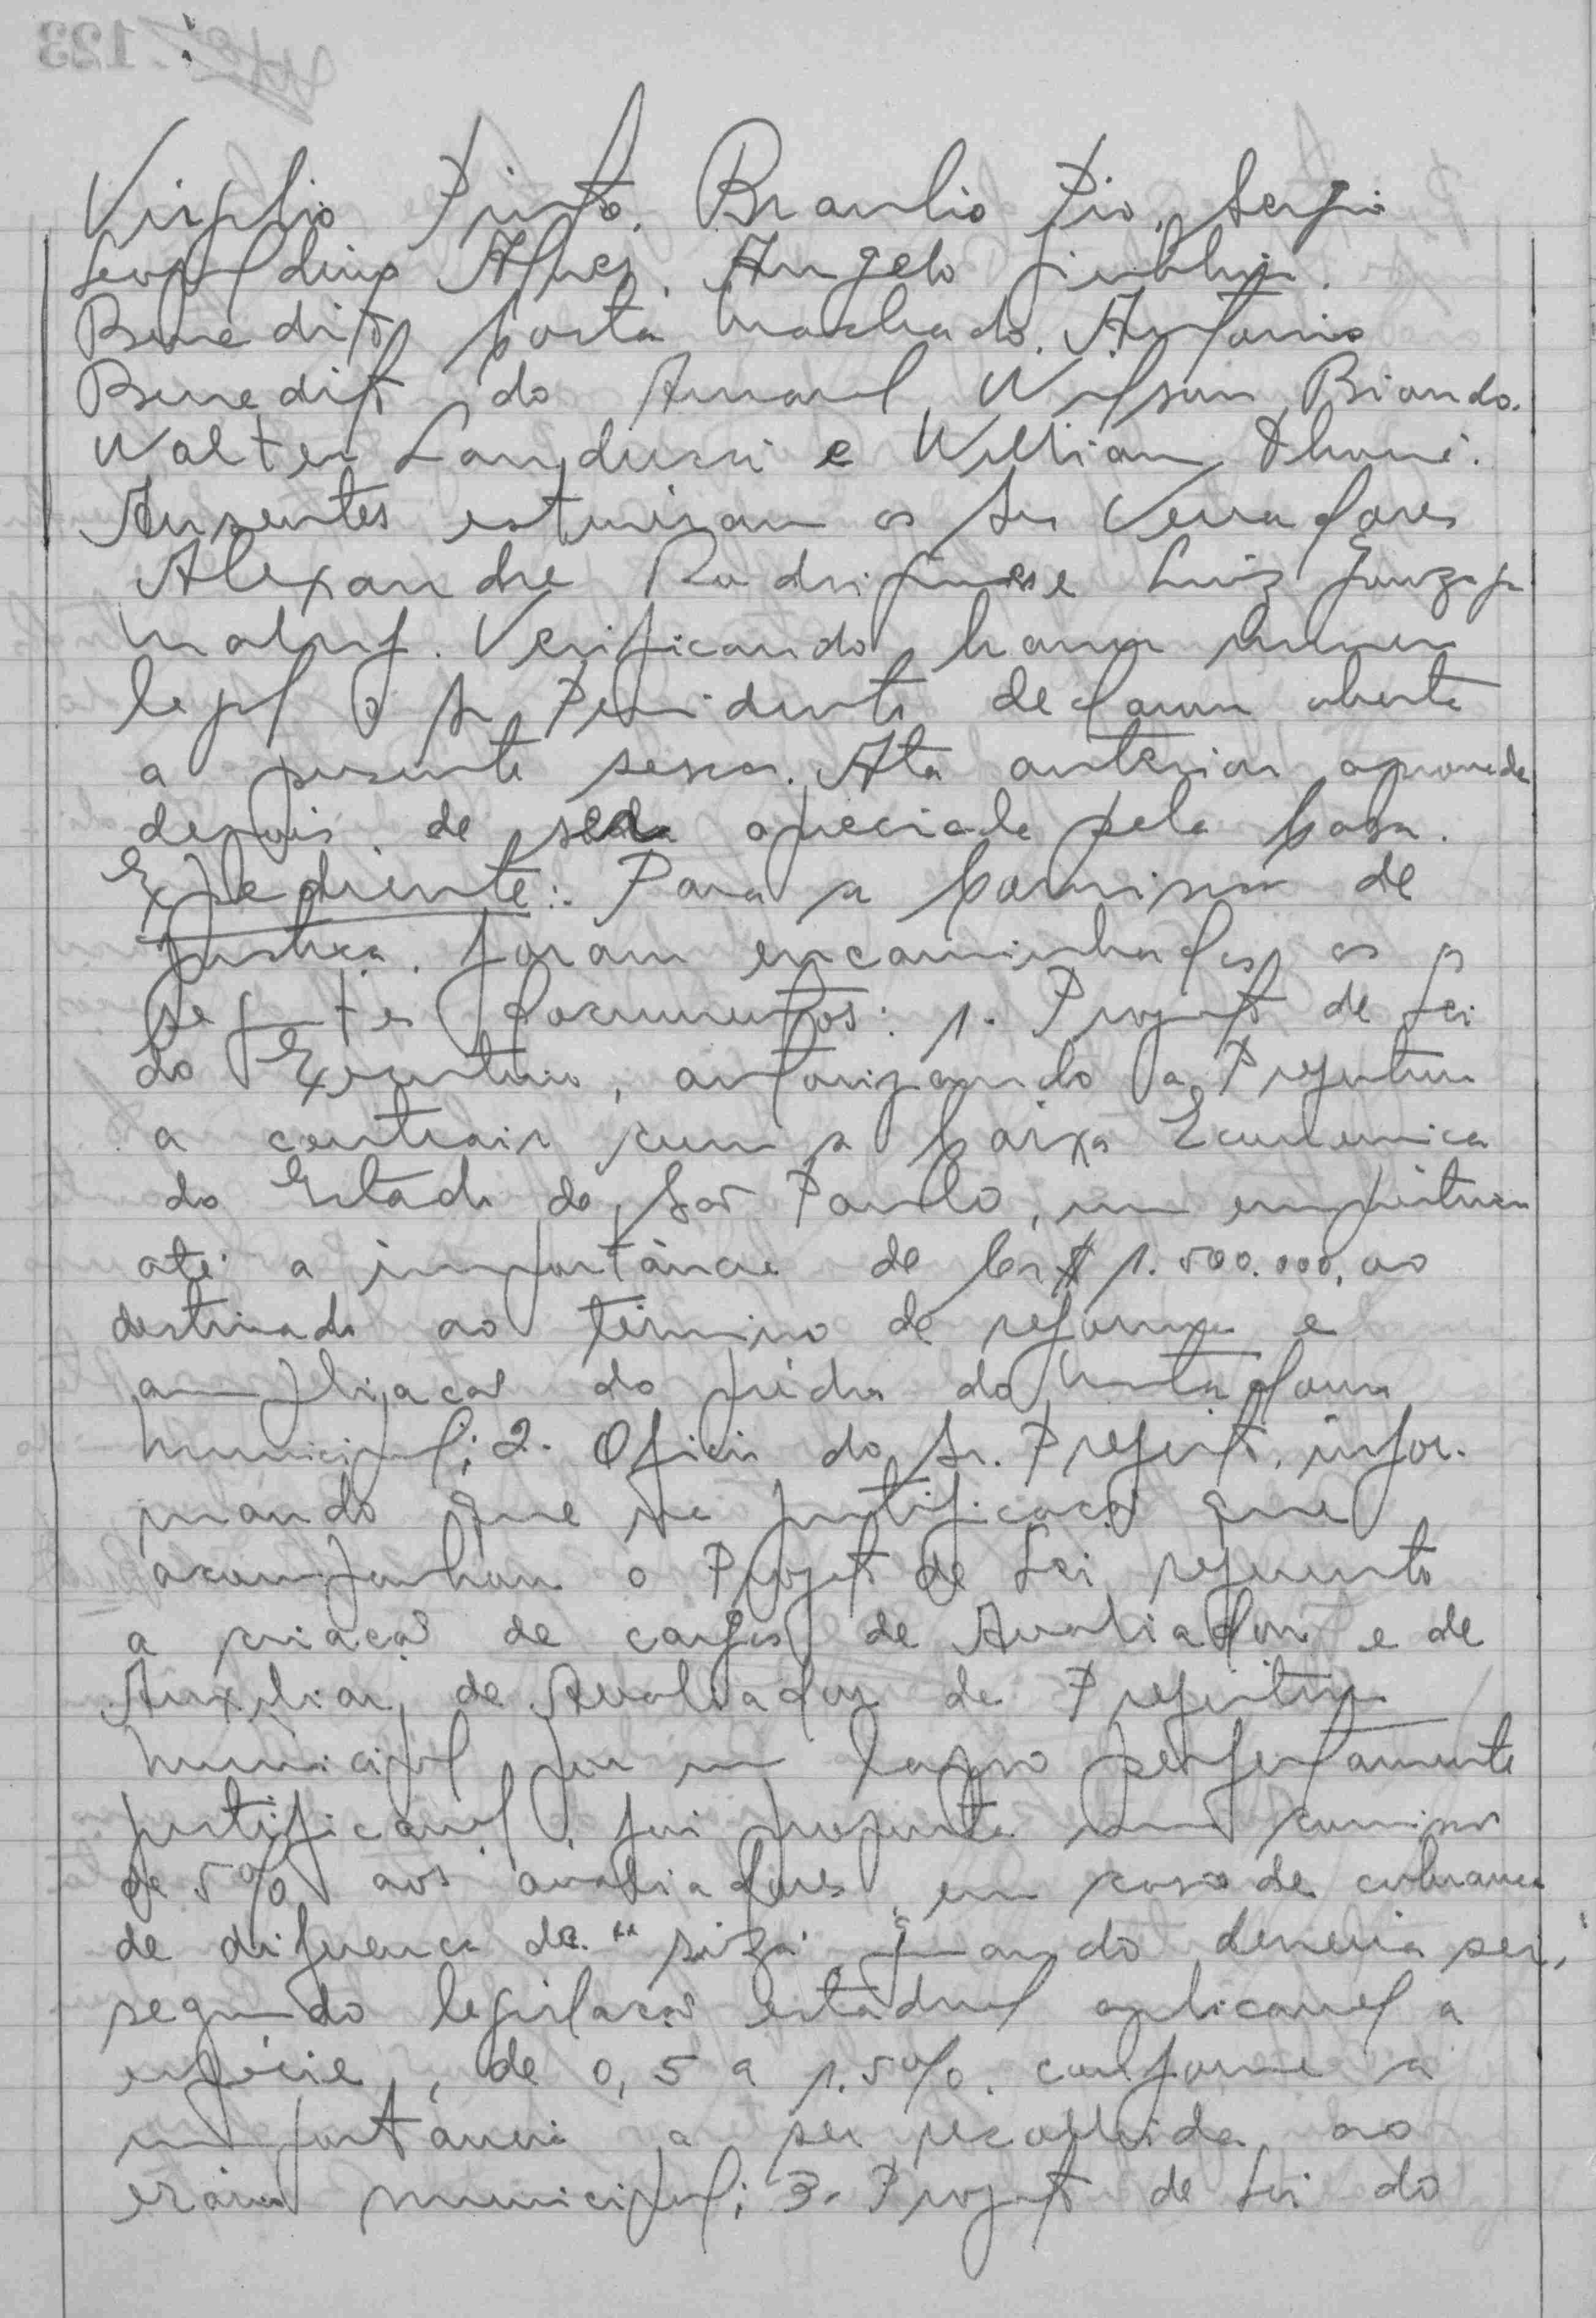 Virgilio Pinto, Braulio Pio, Sergio
Leopoldino Alves, Angelo
Benedito Costa Machado, Antonio
Benedito do Amaral, Wilson Biondo.
Walter Landucci e Willian
Ausentes estiveram os Srs Vereadores
Alexandre Rodrigues e Luiz Gonzaga
Maluf. Verificando haver numero
legal o Sr Presidente declarou aberta
a presente sessão. Ata anterior aprovada
depois de ser apreciada pela Casa.
Expediente: Para a Comissão de
Justiça, foram encaminhados os
segtes documentos: 1. Projeto de Lei
do Executivo, autorizando a Prefeitura
a contrair com a Caixa Economica
do Estado de São Paulo, um emprestimo
até a importância de Cr$ 1.500.000,00
destinado ao término de reforma e
ampliação do prédio do Matadouro
Municipal; 2. Oficio do Sr. Prefeito, infor-
mando que na justificação que
acompanhou o Projeto de Lei referente
a criação de cargos de Avaliador e de
Auxiliar de Avaliador da Prefeitura
Municipal por um lapso perfeitamente
justificavel, foi proposta uma comissão
de 5% aos avaliadores em caso de cobrança
de diferença de "siza" quando deveria ser,
segundo legislação estadual aplicavel a
espécie, de 0,5 a 1.5%. conforme a
importância a ser recolhida ao
erário municipal; 3. Projeto de Lei do